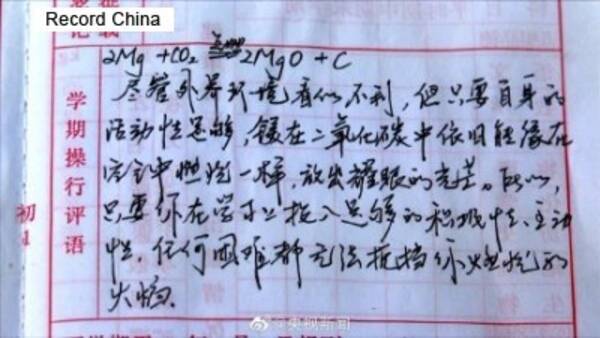 Record China
2Mg +CO₂ 点燃 2MgO + C
尽管外界环境看似不利,但只要自身的
活动性足够,镁在二氧化碳中依旧能像在
空气中燃烧一样,放出耀眼的光芒。所以,
只要你在学习上投入足够的积极性、主动
性,任何困难都无法抵挡你燃烧的
火焰。
学期操行评语
初
@央视新闻